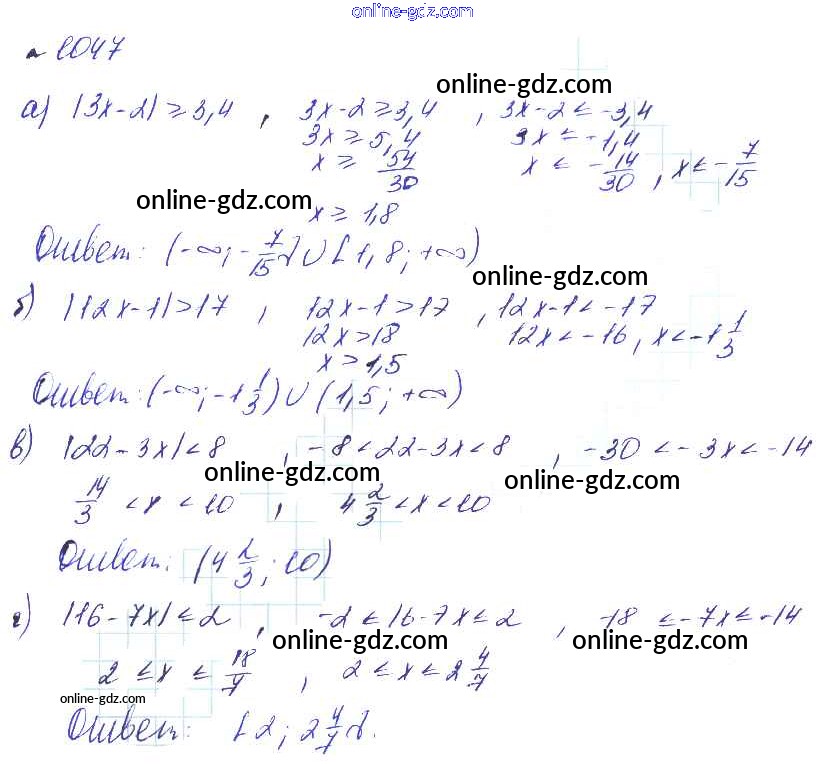 online-gdz.com
№ 1047
online-gdz.com
а) |3x-2| ≥ 3,4 , 3x-2 ≥ 3,4 , 3x-2 ≤ -3,4
3x ≥ 5,4 3x ≤ -1,4
x ≥ 54/30 x ≤ -14/30 , x ≤ -7/15
online-gdz.com
x ≥ 1,8
Ответ: (-∞; -7/15] ∪ [1,8; +∞)
online-gdz.com
б) |12x-1| > 17 , 12x-1 > 17 , 12x-1 < -17
12x > 18 12x < -16, x < -1 1/3
x > 1,5
Ответ: (-∞; -1 1/3) ∪ (1,5; +∞)
в) |22-3x| < 8 , -8 < 22-3x < 8 , -30 < -3x < -14
online-gdz.com online-gdz.com
14/3 < x < 10 , 4 2/3 < x < 10
Ответ: (4 2/3; 10)
г) |16-7x| ≤ 2 , -2 ≤ 16-7x ≤ 2 , -18 ≤ -7x ≤ -14
online-gdz.com online-gdz.com
2 ≤ x ≤ 18/7 , 2 ≤ x ≤ 2 4/7
online-gdz.com
Ответ: [2; 2 4/7].